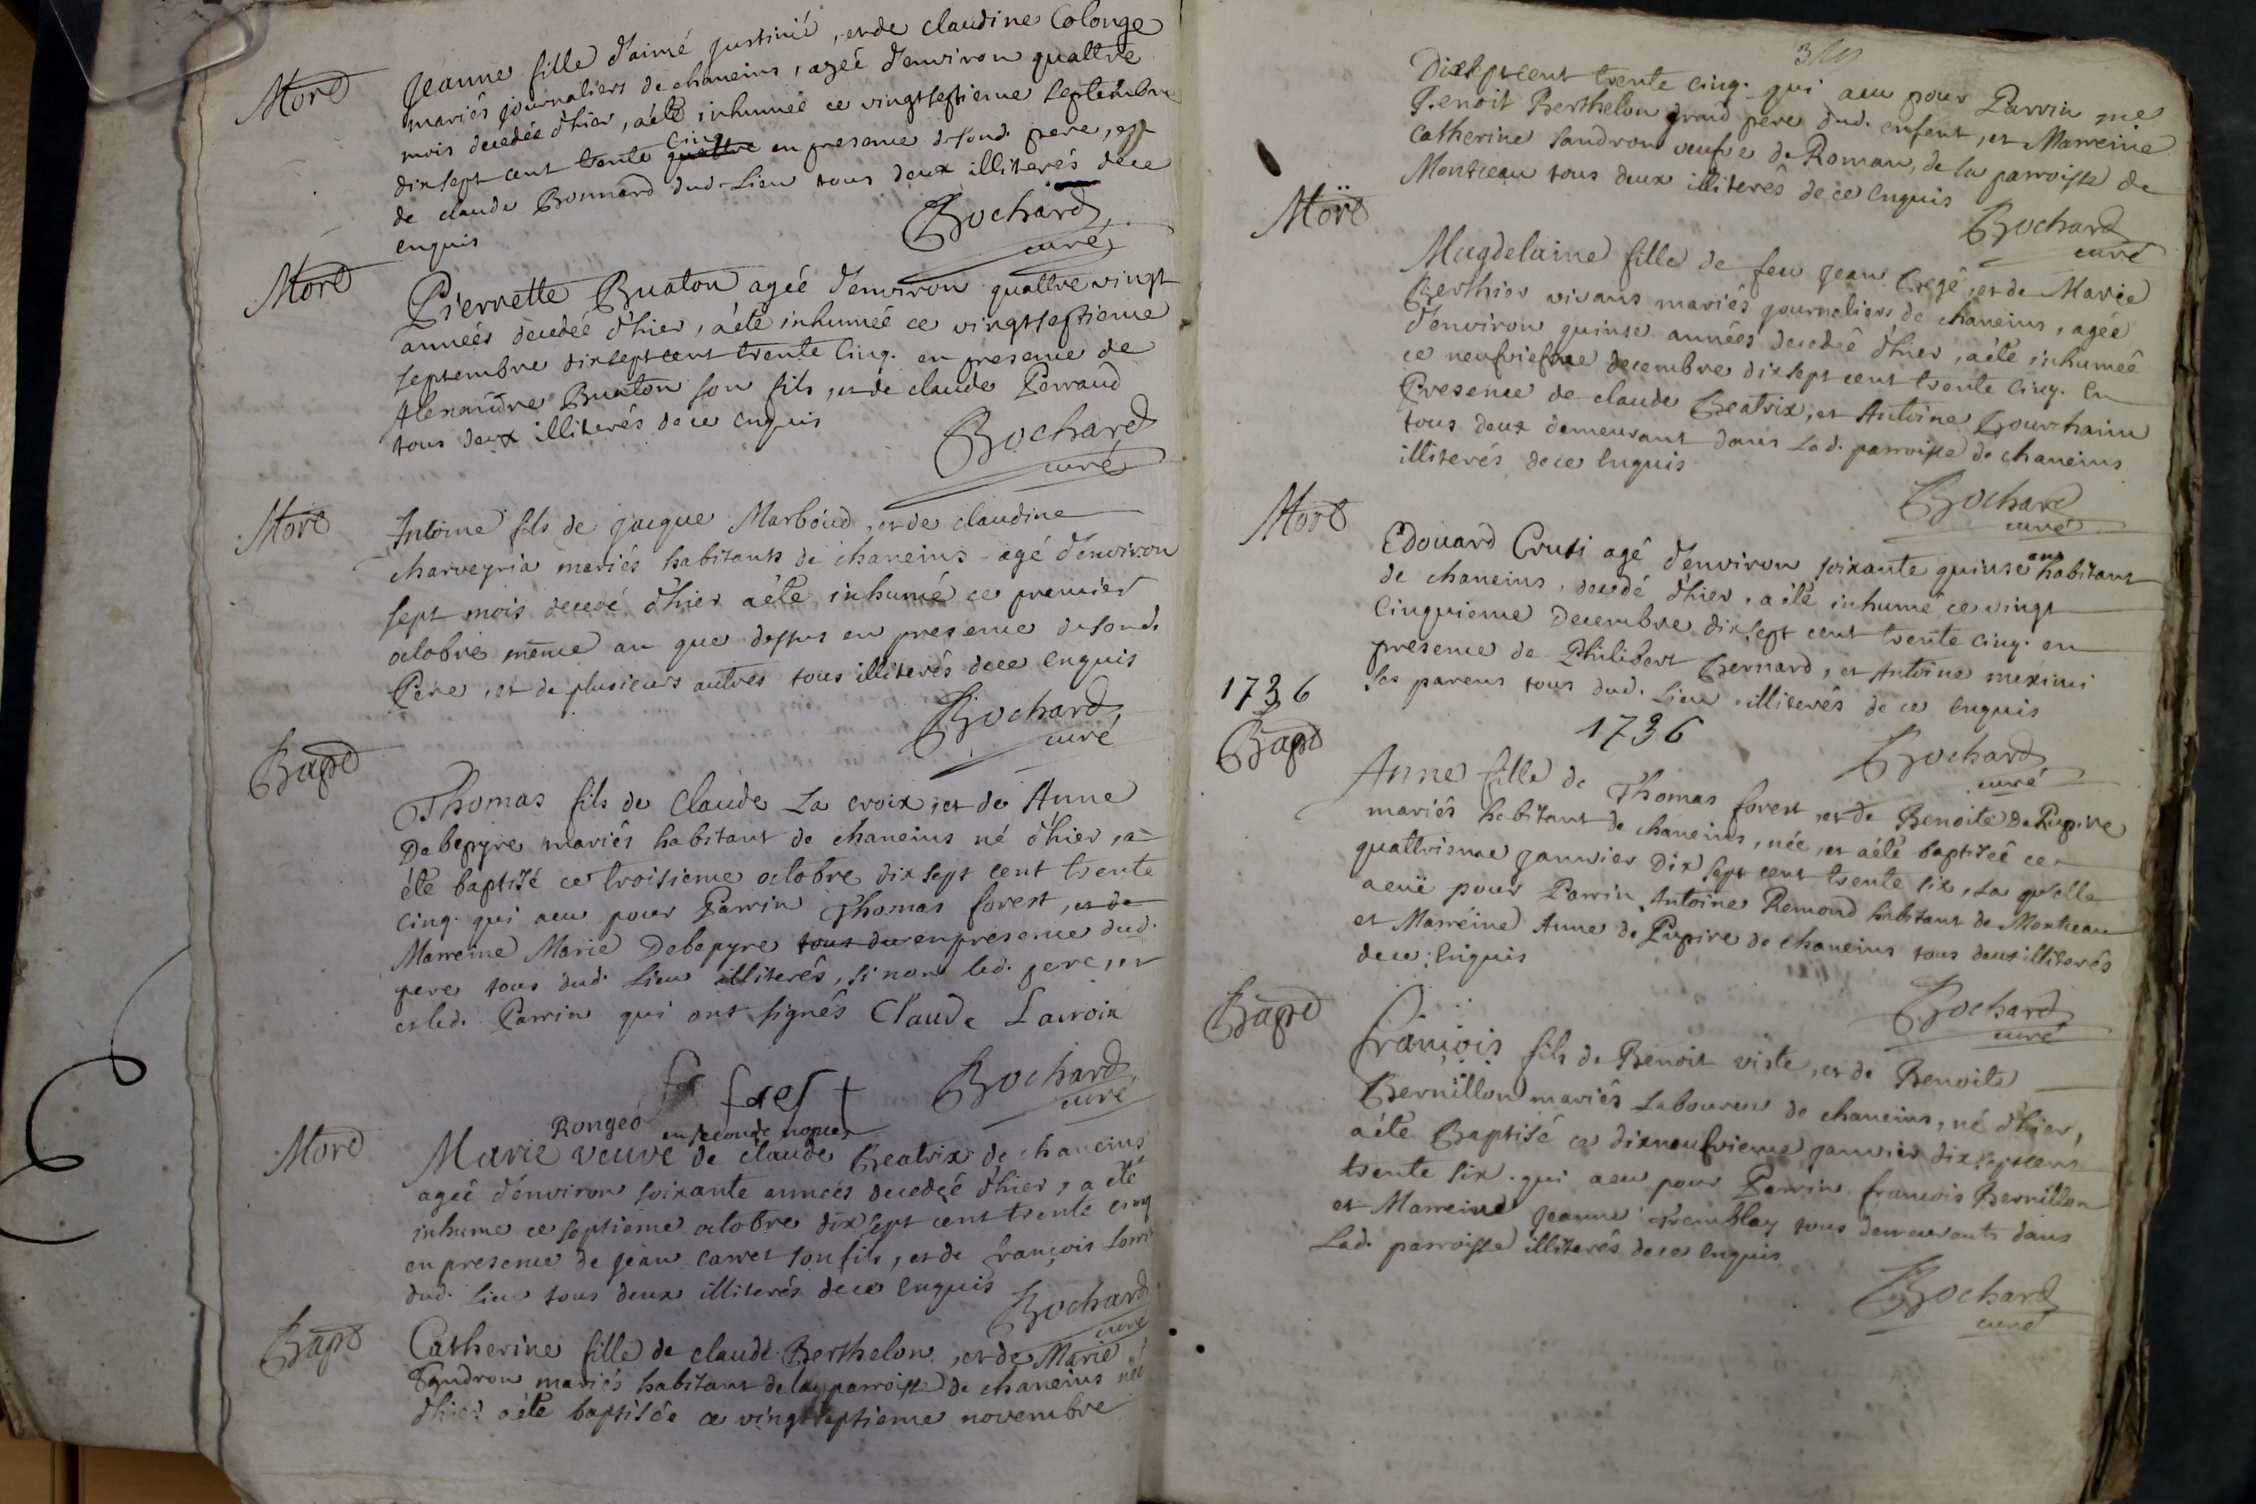 Mort
Jeanne fille d'aimé justinié, et de claudine Colonge
mariés journaliers de chaneins, agée d'environ quattre
mois decedée d'hier, a été inhumée ce vingtseptieme septembre
dixsept cent trente quattre cinq en presence de sond. pere, et
de claude Bonnard dud. Lieu tous deux illiterés de ce
enquis
Bochard
curé
Mort
Pierrette Buaton agée d'environ quattrevingt
années decedée d'hier, a été inhumée ce vingtseptieme
septembre dixsept cent trente Cinq. en presence de
Alexandre Buaton son fils, et de claude Perraud
tous deux illiterés de ce enquis
Bochard
curé
Mort
Antoine fils de jacque Marboud, et de claudine
charveyria mariés habitants de chaneins agé d'environ
sept mois decedé d'hier a été inhumé ce premier
octobre même an que dessus en presence de sond.
Pere, et de plusieurs autres tous illiterés de ce enquis
Bochard
curé
Bapt
Thomas fils de Claude La croix, et de Anne
Debepyre mariés habitant de chaneins né d'hier, a
été baptisé ce troisieme octobre dixsept cent trente
Cinq. qui a eu pour Parrin Thomas forest, et de
Marreine Marie Debepyre tous du en presence dud.
pere tous dud. Lieu illiterés, si non led. pere, et
et led. Parrin qui ont signés Claude Lacroix
Bochard
curé
Mort
Rongeo en seconde nopces
Marie veuve de claude Beatrix de chaneins
ageé d'environ soixante années decedée d'hier, a été
inhume ce septieme octobre dix sept cent trente cinq
en presence de jean carret son fils, et de françois
dud. Lieu tous deux illiterés de ce enquis
Bochard
curé
Bapt
Catherine fille de claude Berthelon, et de Marie
Tandron mariés habitant de la parroisse de chaneins née
d'hier a été baptisée ce vingtseptieme novembre
Dixsept cent trente Cinq. qui a eu pour Parrin me
Benoit Berthelon grand pere dud. enfent, et Marreine
catherine Tandron veufve de Roman, de la parroisse de
Montceau tous deux illiterés de ce enquis
Bochard
curé
Mort
Magdelaine fille de feu jean Cregé, et de Marie
Berthier vivans mariés journaliers de chaneins, agée
d'environ quinse années decedée d'hier, a été inhumée
ce neufviesme decembre dixsept cent trente Cinq. en
Presence de claude Beatrix, et Antoine Bourchanin
tous deux demeurant dans Lad. parroisse de chaneins
illiterés de ce enquis
Bochard
curé
Mort
Edouard Cruti agé d'environ soixante quinse ans habitant
de chaneins, decedé d'hier, a été inhumé ce vingt
Cinquieme Decembre dixsept cent trente Cinq. en
presence de Philibert Bernard, et Antoine meximi
ses parens tous dud. Lieu illiterés de ce enquis
Bochard
curé
1736
1736
Bapt
Anne fille de Thomas forest, et de Benoite De Pupire
mariés habitant de chaneins, née, et a été baptisée ce
quattriesme janvier Dix sept cent trente six, La qu'elle
a eüe pour Parrin Antoine Remond habitant de Montceau
et Marréine Anne de Pupire de chaneins tous deux illiterés
de ce enquis
Bochard
curé
Bapt
François fils de Benoit viste, et de Benoite
Bernillon mariés Laboureur de chaneins, né d'hier,
a été Baptisé ce dixneufvieme janvier dixseptcent
trente six. qui a eu pour Parrin francois Bernillon
et Marreine Jeanne Tremblay tous demeurants dans
Lad. parroisse illiterés de ce enquis
Bochard
curé